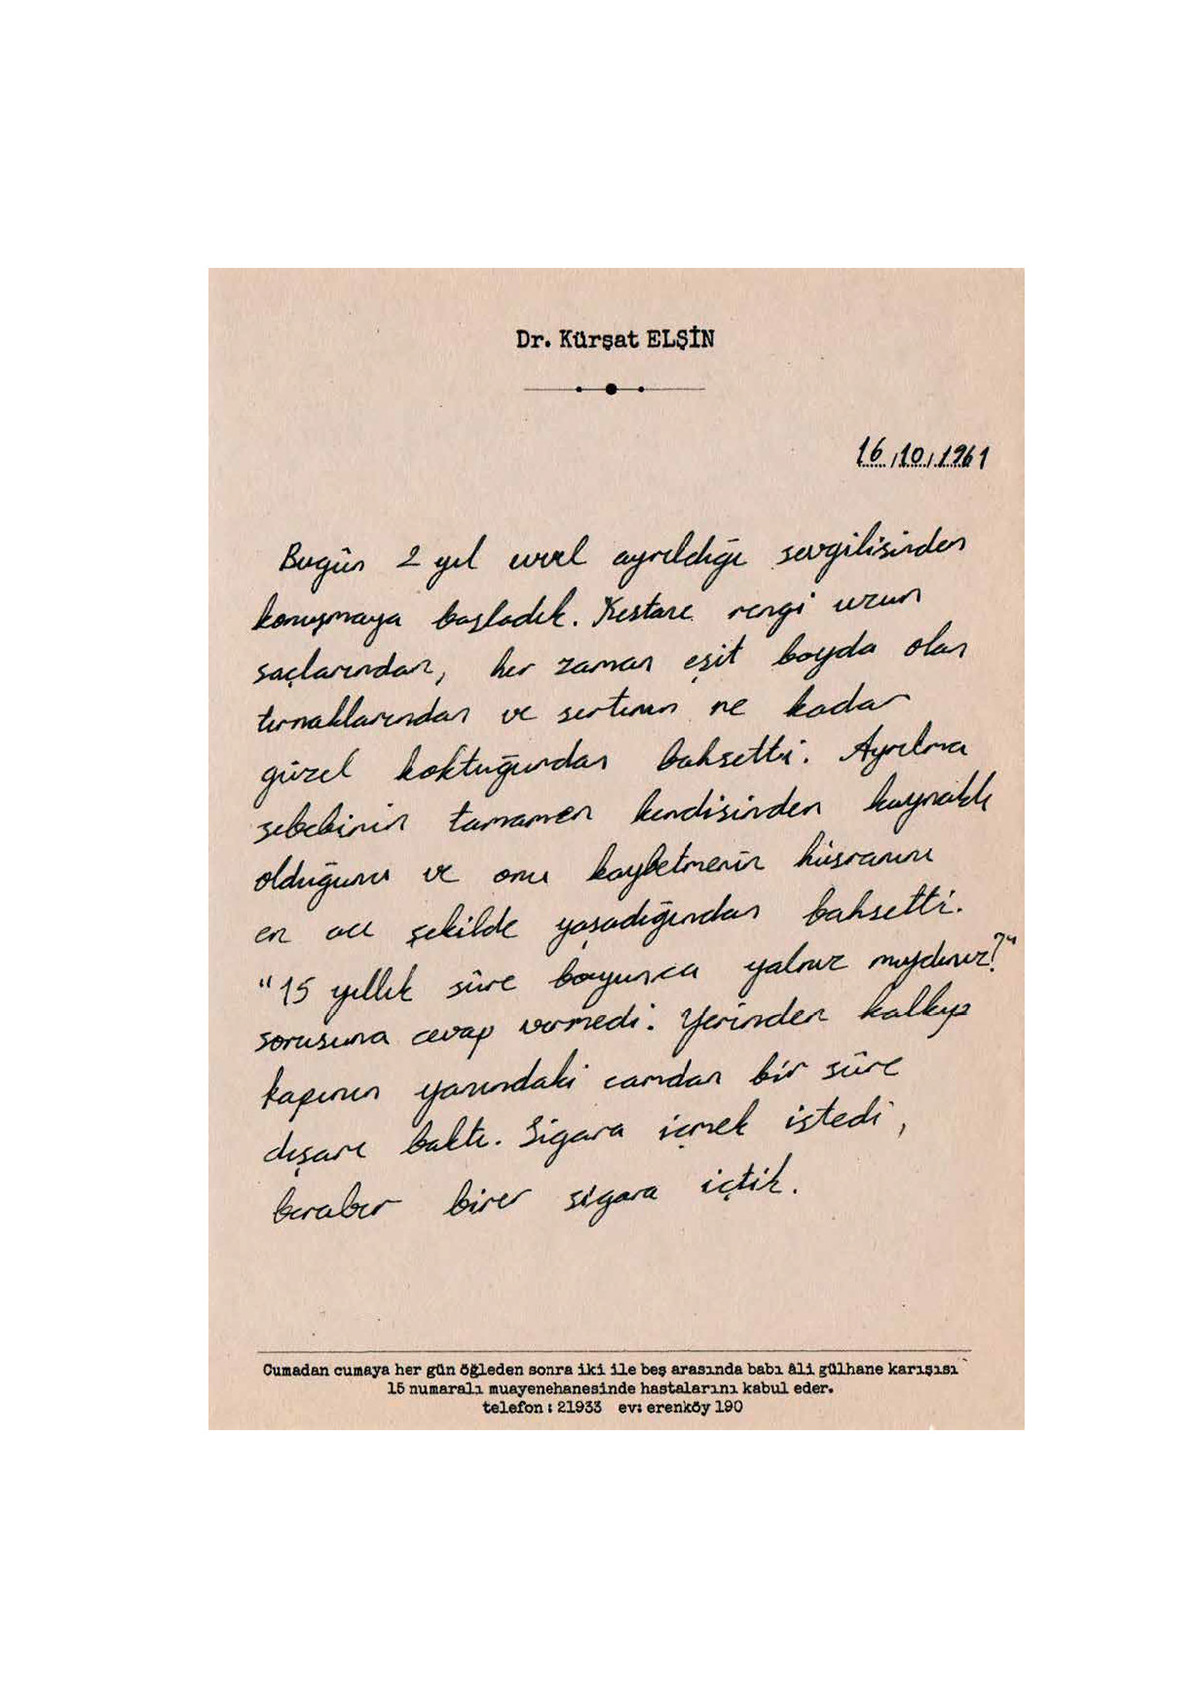 Dr. Kürşat ELŞİN
16/10/1961
Bugün 2 yıl evvel ayrıldığı sevgilisinden
konuşmaya başladık. Kestane rengi uzun
saçlarından, her zaman eşit boyda olan
tırnaklarından ve sırtının ne kadar
güzel koktuğundan bahsetti. Ayrılma
sebebinin tamamen kendisinden kaynaklı
olduğunu ve onu kaybetmenin hüsranını
en acı şekilde yaşadığından bahsetti.
"15 yıllık süre boyunca yalnız mıydınız?"
sorusuna cevap vermedi. Yerinden kalkıp
kapının yanındaki camdan bir süre
dışarı baktı. Sigara içmek istedi,
beraber birer sigara içtik.
Cumadan cumaya her gün öğleden sonra iki ile beş arasında babı âli gülhane karışısı
15 numaralı muayenehanesinde hastalarını kabul eder.
telefon : 21933 ev: erenköy 190